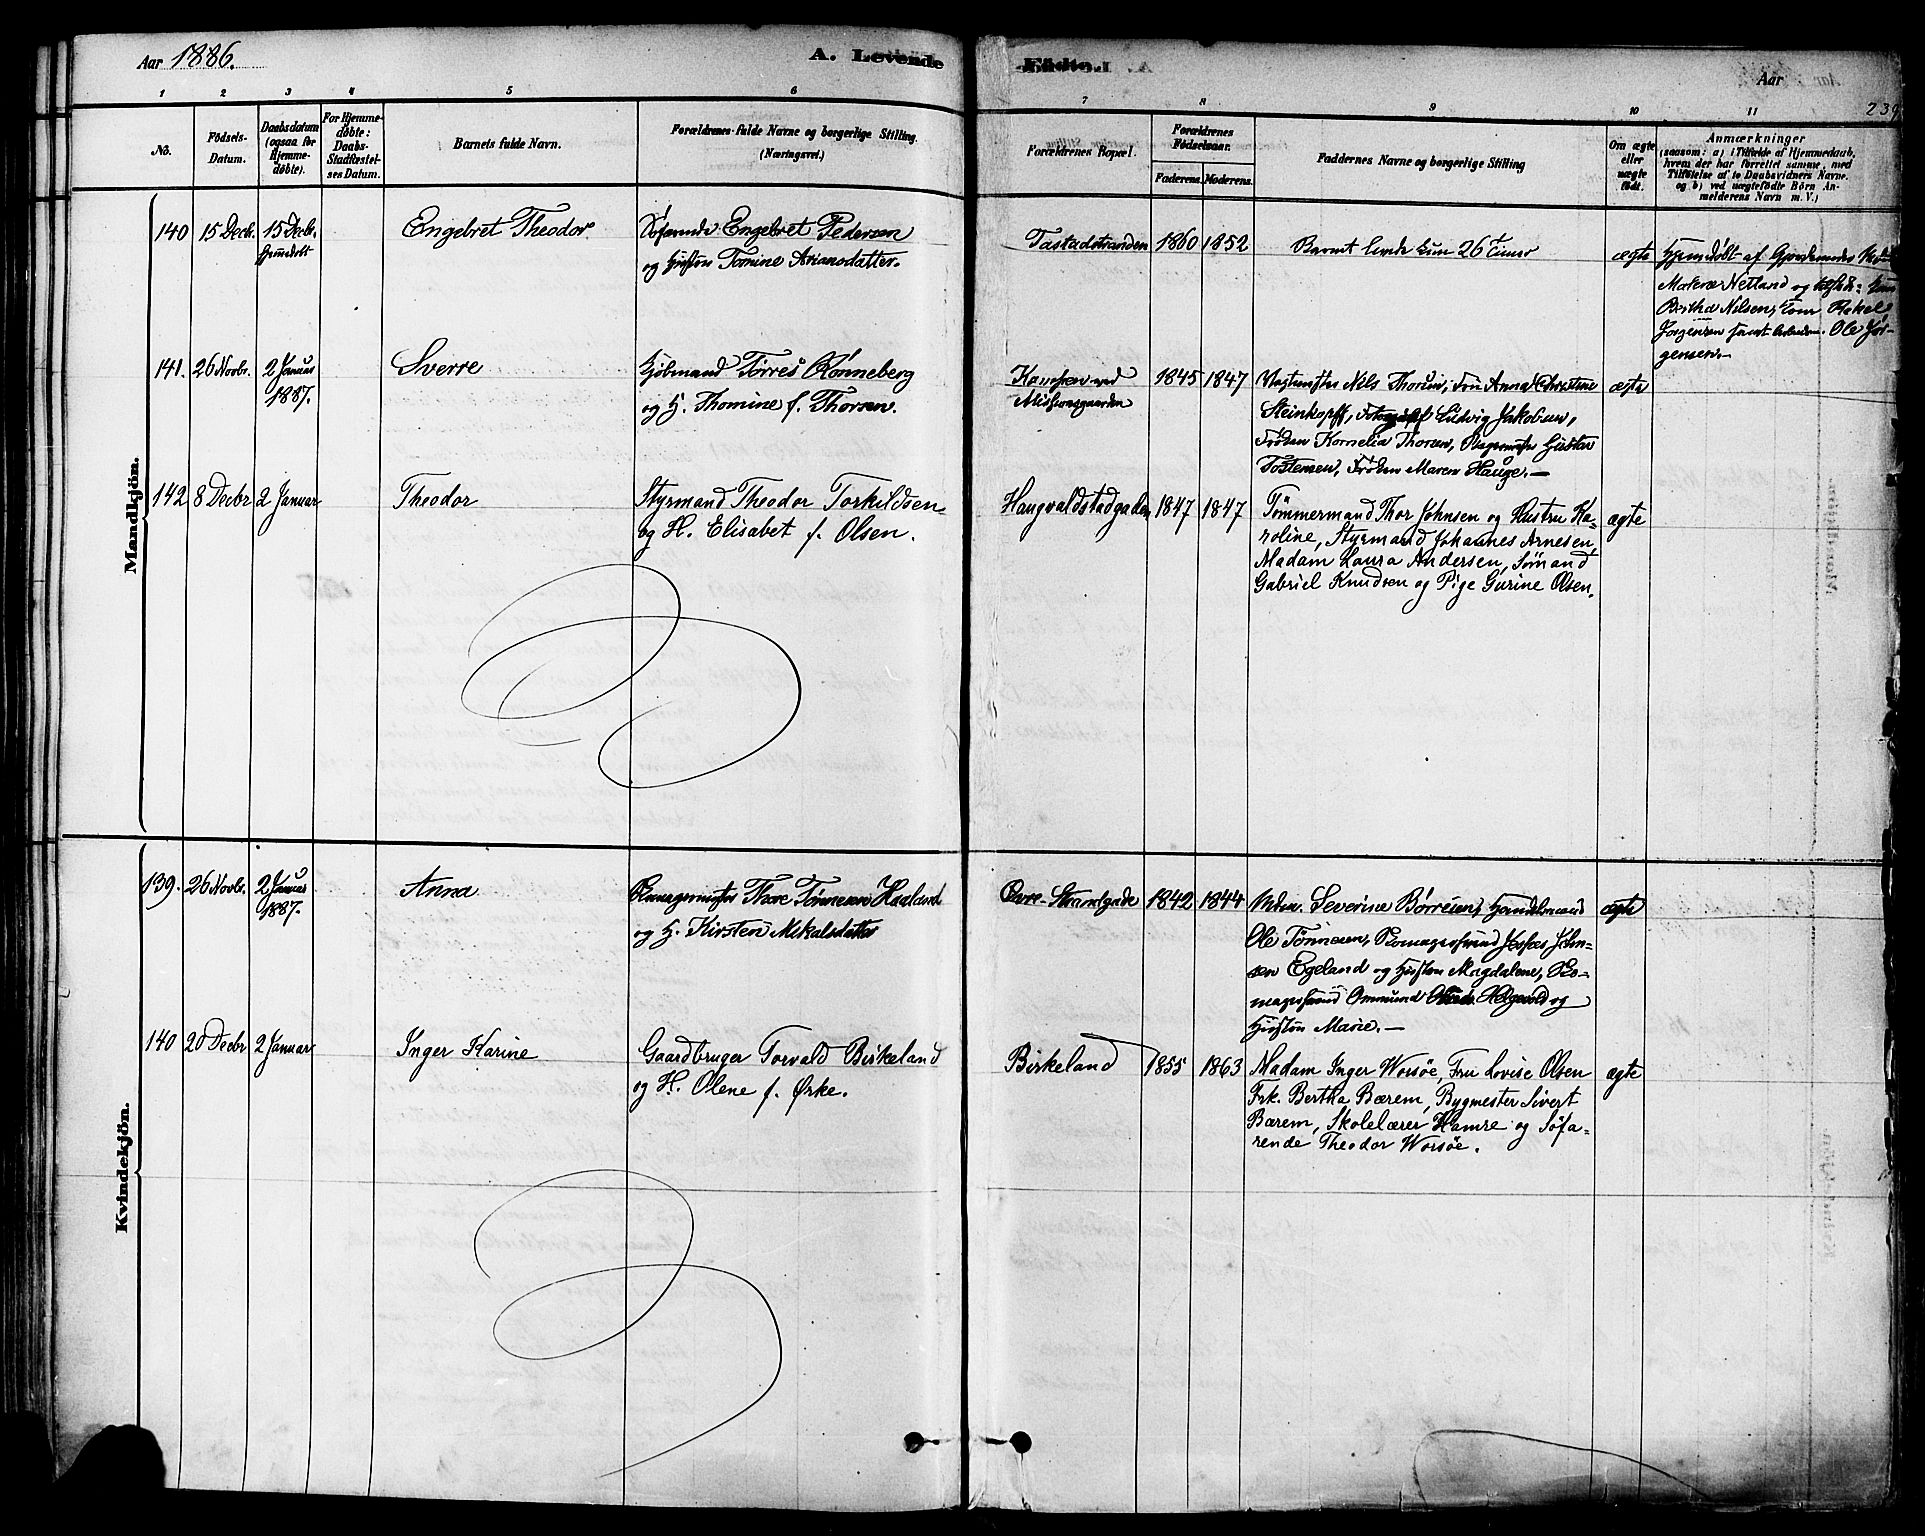 Aar 1886.
A. Levende
Fødte.
Aar
239
1 2 3 4 5 6 7 8 9 10 11
No.
Fødsels-
Datum.
Daabsdatum
(ogsaa for
Hjemme-
døbte).
For Hjemme-
døbte:
Daabs-
Stadfæstel-
ses Datum.
Barnets fulde Navn.
Forældrenes fulde Navne og borgerlige Stilling.
(Næringsvei.)
Forældrenes Bopæl.
Forældrenes
Fødselsaar.
Faderens. Moderens.
Faddernes Navne og borgerlige Stilling
Om ægte
eller
uægte
født.
Anmærkninger
(saasom: a) i Tilfælde af Hjemmedaab,
hvem der har forrettet samme, med
Tilføielse af to Daabsvidners Navne.
og b) ved uægtefødte Børn An-
melderens Navn m. V.)
Mandkjön.
140 15 Decb. 15 Decb.
Hjemmedøbt
Engebret Theodor
Søfarende Engebret Pedersen
og Hustru Tomine Arianosdatter.
Tastadstranden 1860 1852
Barnet levede kun 26 Timer
ægte
Hjemmedøbt af Gjordemoder
Netland og
Bertha Nilsen, Rakel
Jorgensen samt Ole Jør-
gensen.
141. 26 Novbr. 2 Januar
1887.
Sverre
Kjøbmand Torres Rønneberg
og H. Thomine f. Thorsen.
ved
Missionsgaarden
1845 1847
Nils Thorsen, Fru Anna Christine
Steinkopff, Fotograf Ludvig Jakobsen,
Frøken Kornelia Thorsen, Gustav
Tostensen, Frøken Maren Hauge.—
ægte
142 8 Decbr 2 Januar
Theodor
Styrmand Theodor Torkildsen
og H. Elisabet f. Olsen.
Haugvaldstadgaden 1847 1847
Tömmermand Thor Johnsen og Hustru Ka-
roline, Styrmand Johannes Arnesen,
Madam Laura Andersen, Sömand
Gabriel Knudsen og Pige Gurine Olsen.
ægte
Kvindekjön.
139. 26 Novbr. 2 Januar
1887.
Anna
Thore Tønnesen Haaland
og H. Kirsten Mikalsdatter
Øvre Strandgade 1842 1844
Severine Børresen, Handelsmand
Ole Tønnesen, John-
sen Egeland og Hustru Magdalene, Sko-
magersvend Ommund Helgevold og
Hustru Marie.—
ægte
140 20 Decbr 2 Januar
Inger Karine
Gaardbruger Torvald Birkeland
og H. Olene f. Ørke.
Birkeland 1855 1863
Madam Inger Worsöe, Fru Lovise Olsen
Frk. Bertha Bærem, Bygmester Sivert
Bærem, Skolelærer Hamre og Söfa-
rende Theodor Worsöe.
ægte